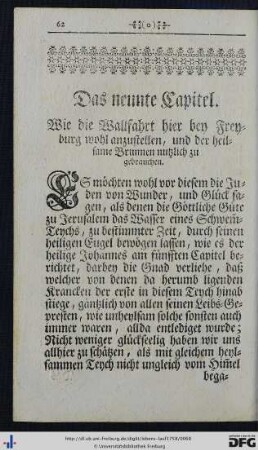 62
Das neunte Capitel.
Wie die Wallfahrt hier bey Frey-
burg wohl anzustellen, und der heil-
same Brunnen nutzlich zu
gebrauchen.
ES möchten wohl vor diesem die Ju-
den von Wunder, und Glück sa-
gen, als denen die Göttliche Güte
zu Jerusalem das Wasser eines Schwem-
Teychs, zu bestimmter Zeit, durch seinen
heiligen Engel bewögen lassen, wie es der
heilige Johannes am fünfften Capitel be-
richtet, darbey die Gnad verliehe, daß
welcher von denen da herumb ligenden
Krancken der erste in diesem Teych hinab
stiege, gäntzlich von allen seinen Leibs-Ge-
presten, wie unheylsam solche sonsten auch
immer waren, allda entlediget wurde;
Nicht weniger glückseelig haben wir uns
allhier zu schätzen, als mit gleichem heyl-
sammen Teych nicht ungleich vom Himel
bega-
http://dl.ub.uni-freiburg.de/diglit/
© Universitätsbibliothek Freiburg
DFG